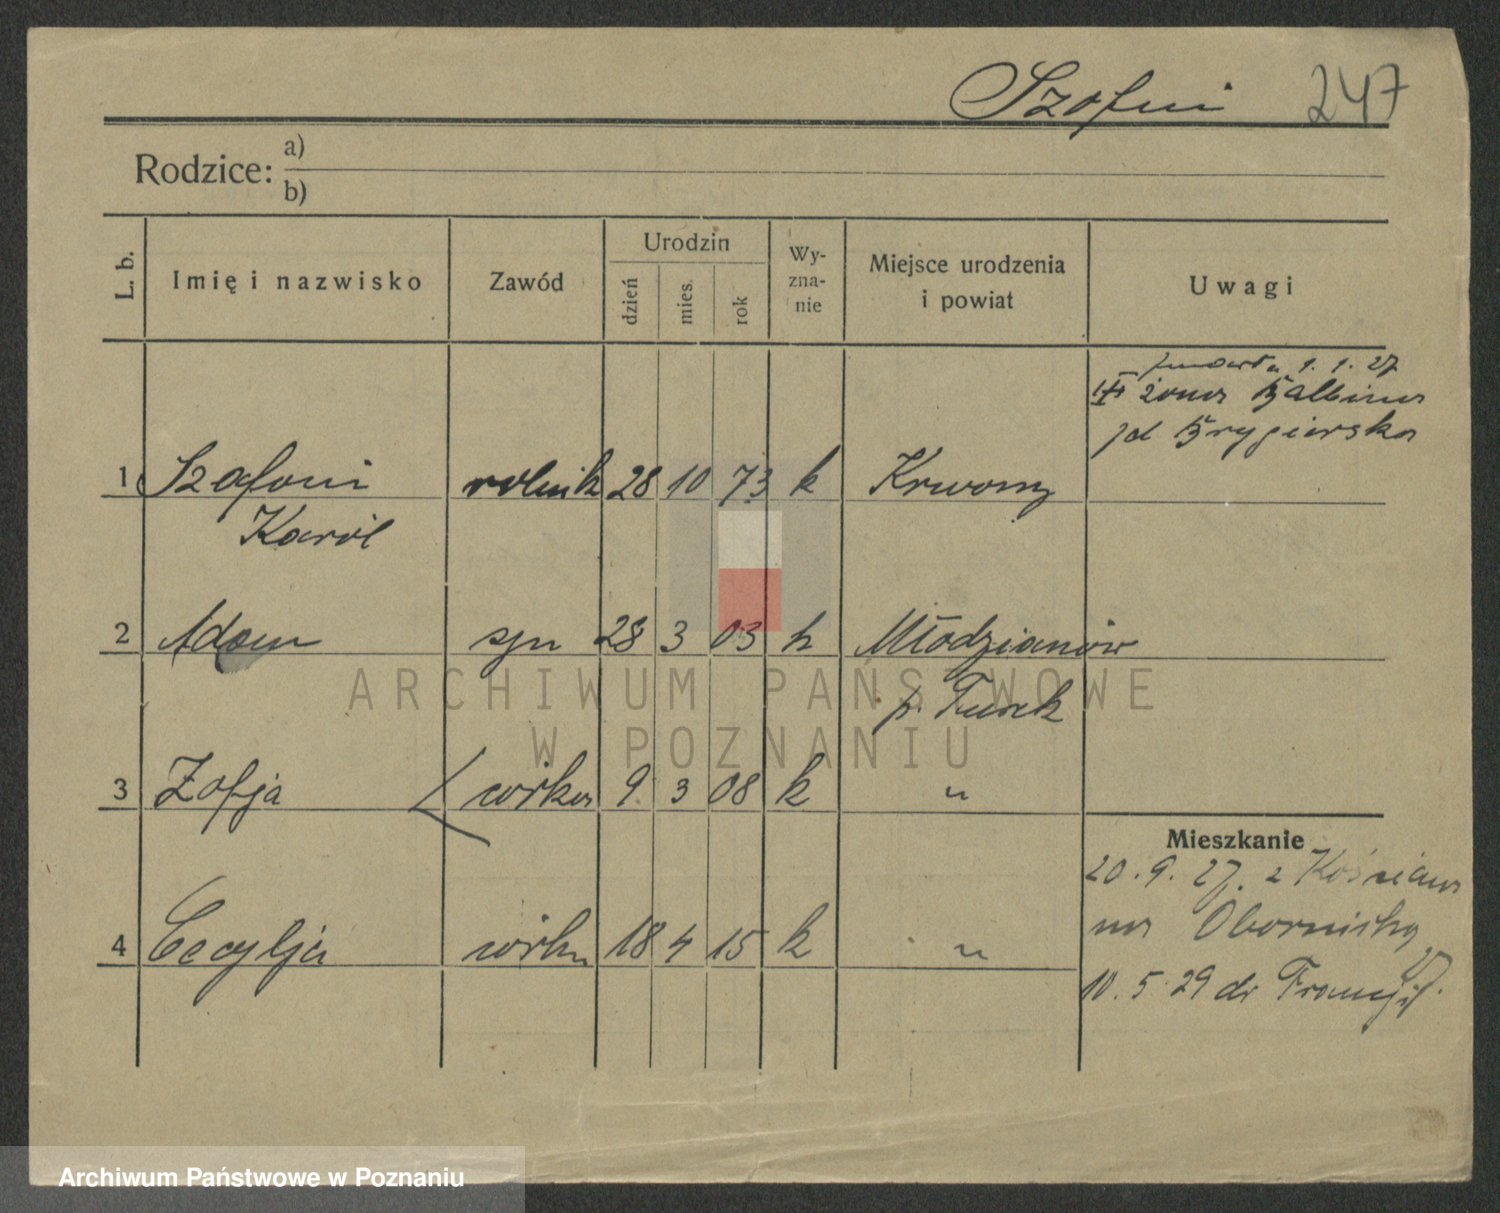 Szofni 247
Rodzice: a)
b)
L. b. Imię i nazwisko Zawód Urodzin dzień mies. rok Wyznanie Miejsce urodzenia i powiat Uwagi
zmarła 1. 1. 27
żona Balbina
zd Brygierska
1 Szafoni rolnik 28 10 73 k Krwony
Karol
2 Adam syn 28 3 03 k Młodzianów
p. Turek
3 Zofja córka 9 3 08 k "
Mieszkanie
20. 9. 27. z Kościana
na Obornicką
4 Cecylja córka 18 4 15 k "
10. 5 29 do Francji
ARCHIWUM PAŃSTWOWE
W POZNANIU
Archiwum Państwowe w Poznaniu